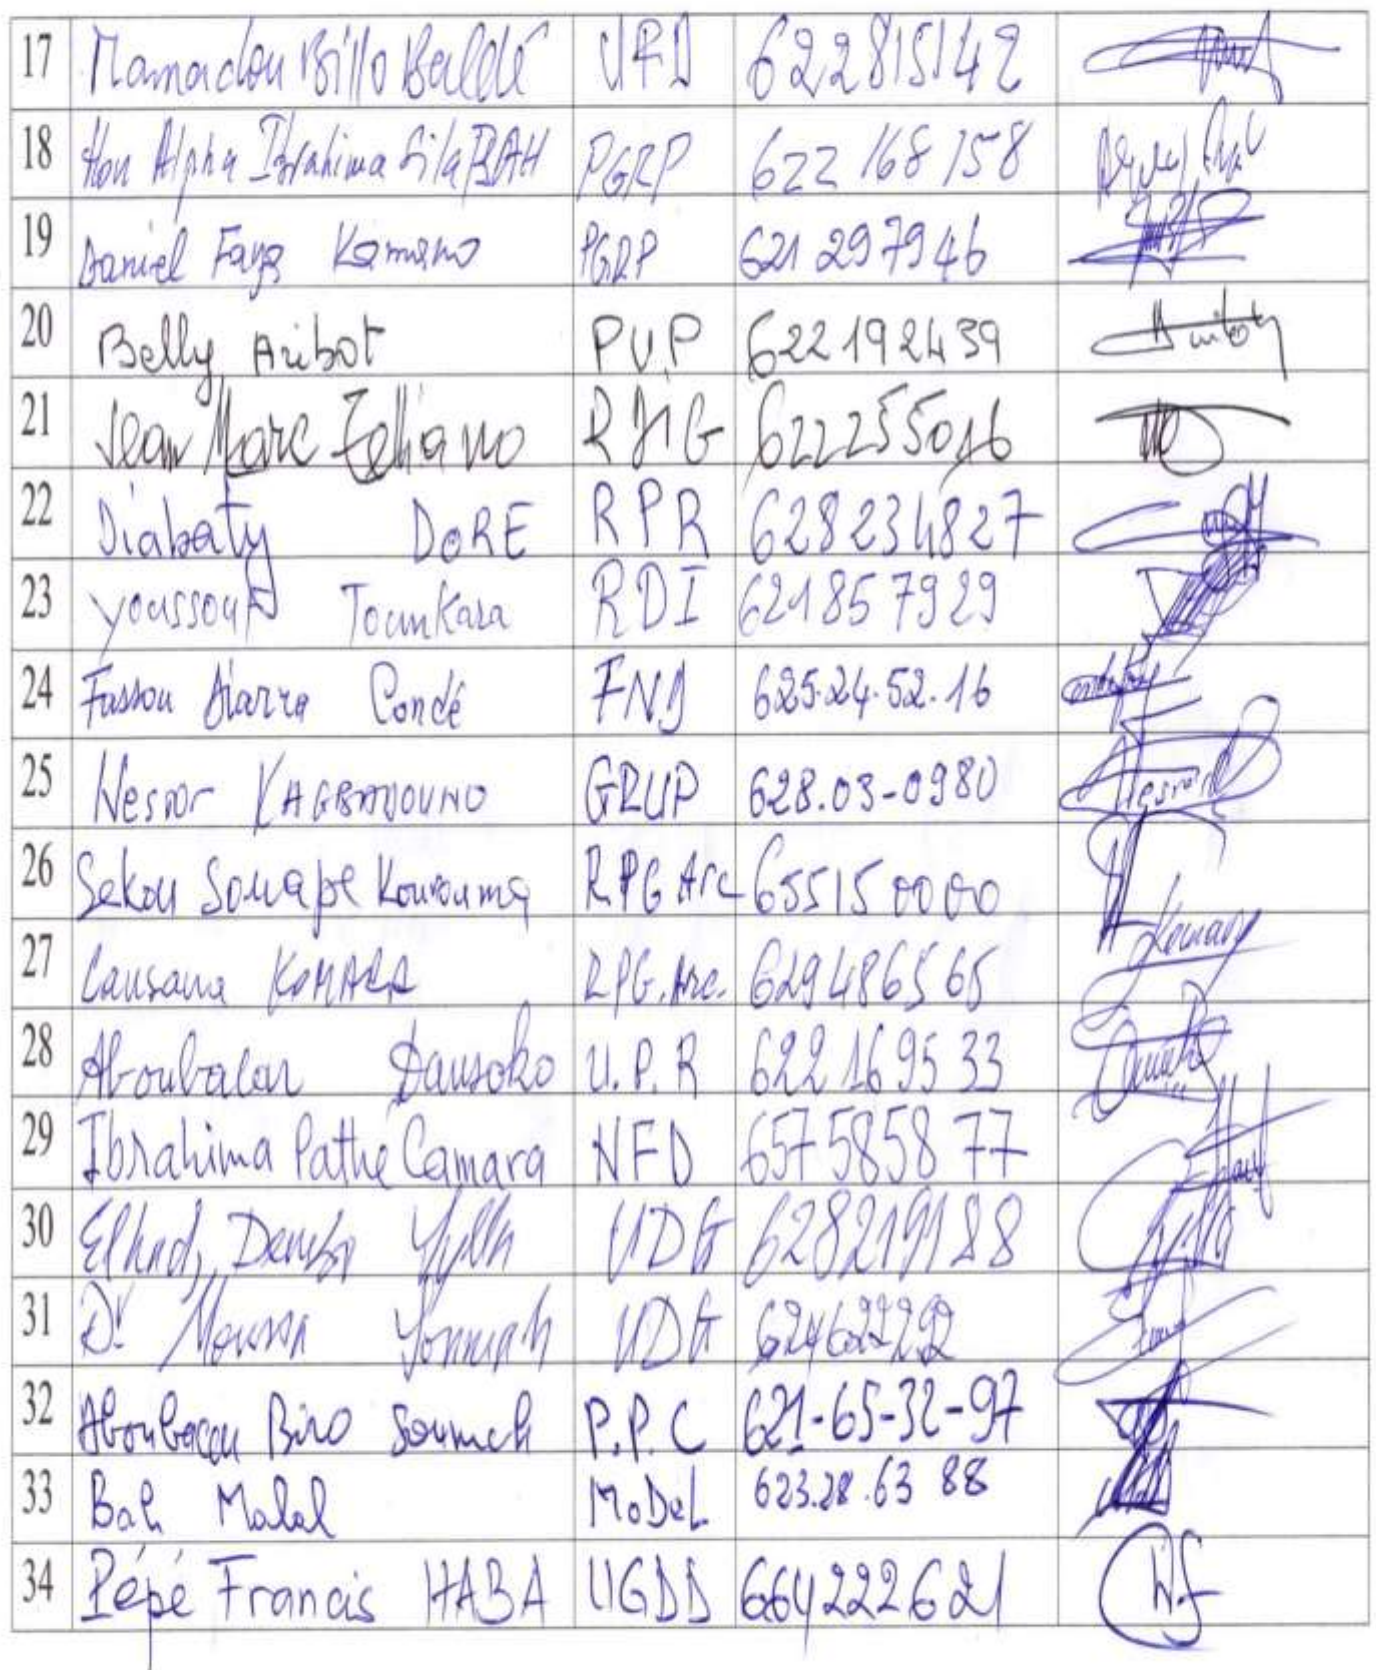 17 Mamadou Billo Baldé UFD 622815142
18 Hon Alpha Ibrahima Sila BAH PGRP 622 168 158
19 Daniel Faya Kamano PGRP 621 297946
20 Belly Aribot P.U.P 622 192439
21 Jean Marc Telliano RDIG 622255016
22 Diabaty DORE RPR 628234827
23 Youssouf Tounkara RDI 621857929
24 Fassou Diarra Condé FND 625.24.52.16
25 Nestor KAGBADOUNO GRUP 628.03-0980
26 Sekou Souapé Kourouma RPG Arc 655150000
27 Lansana KOMARA RPG.Arc. 629486565
28 Aboubacar Dansoko U.P.R 622 16 95 33
29 Ibrahima Pathé Camara NFD 657 5858 77
30 Elhadj Yylla UDG 628219188
31 Dr Moussa UDG 624622292
32 Aboubacar Biro Soumah P.P.C 621-65-32-97
33 Bah Malal MoDeL 623.28.63 88
34 Pépé Francis HABA UGDD 664222621